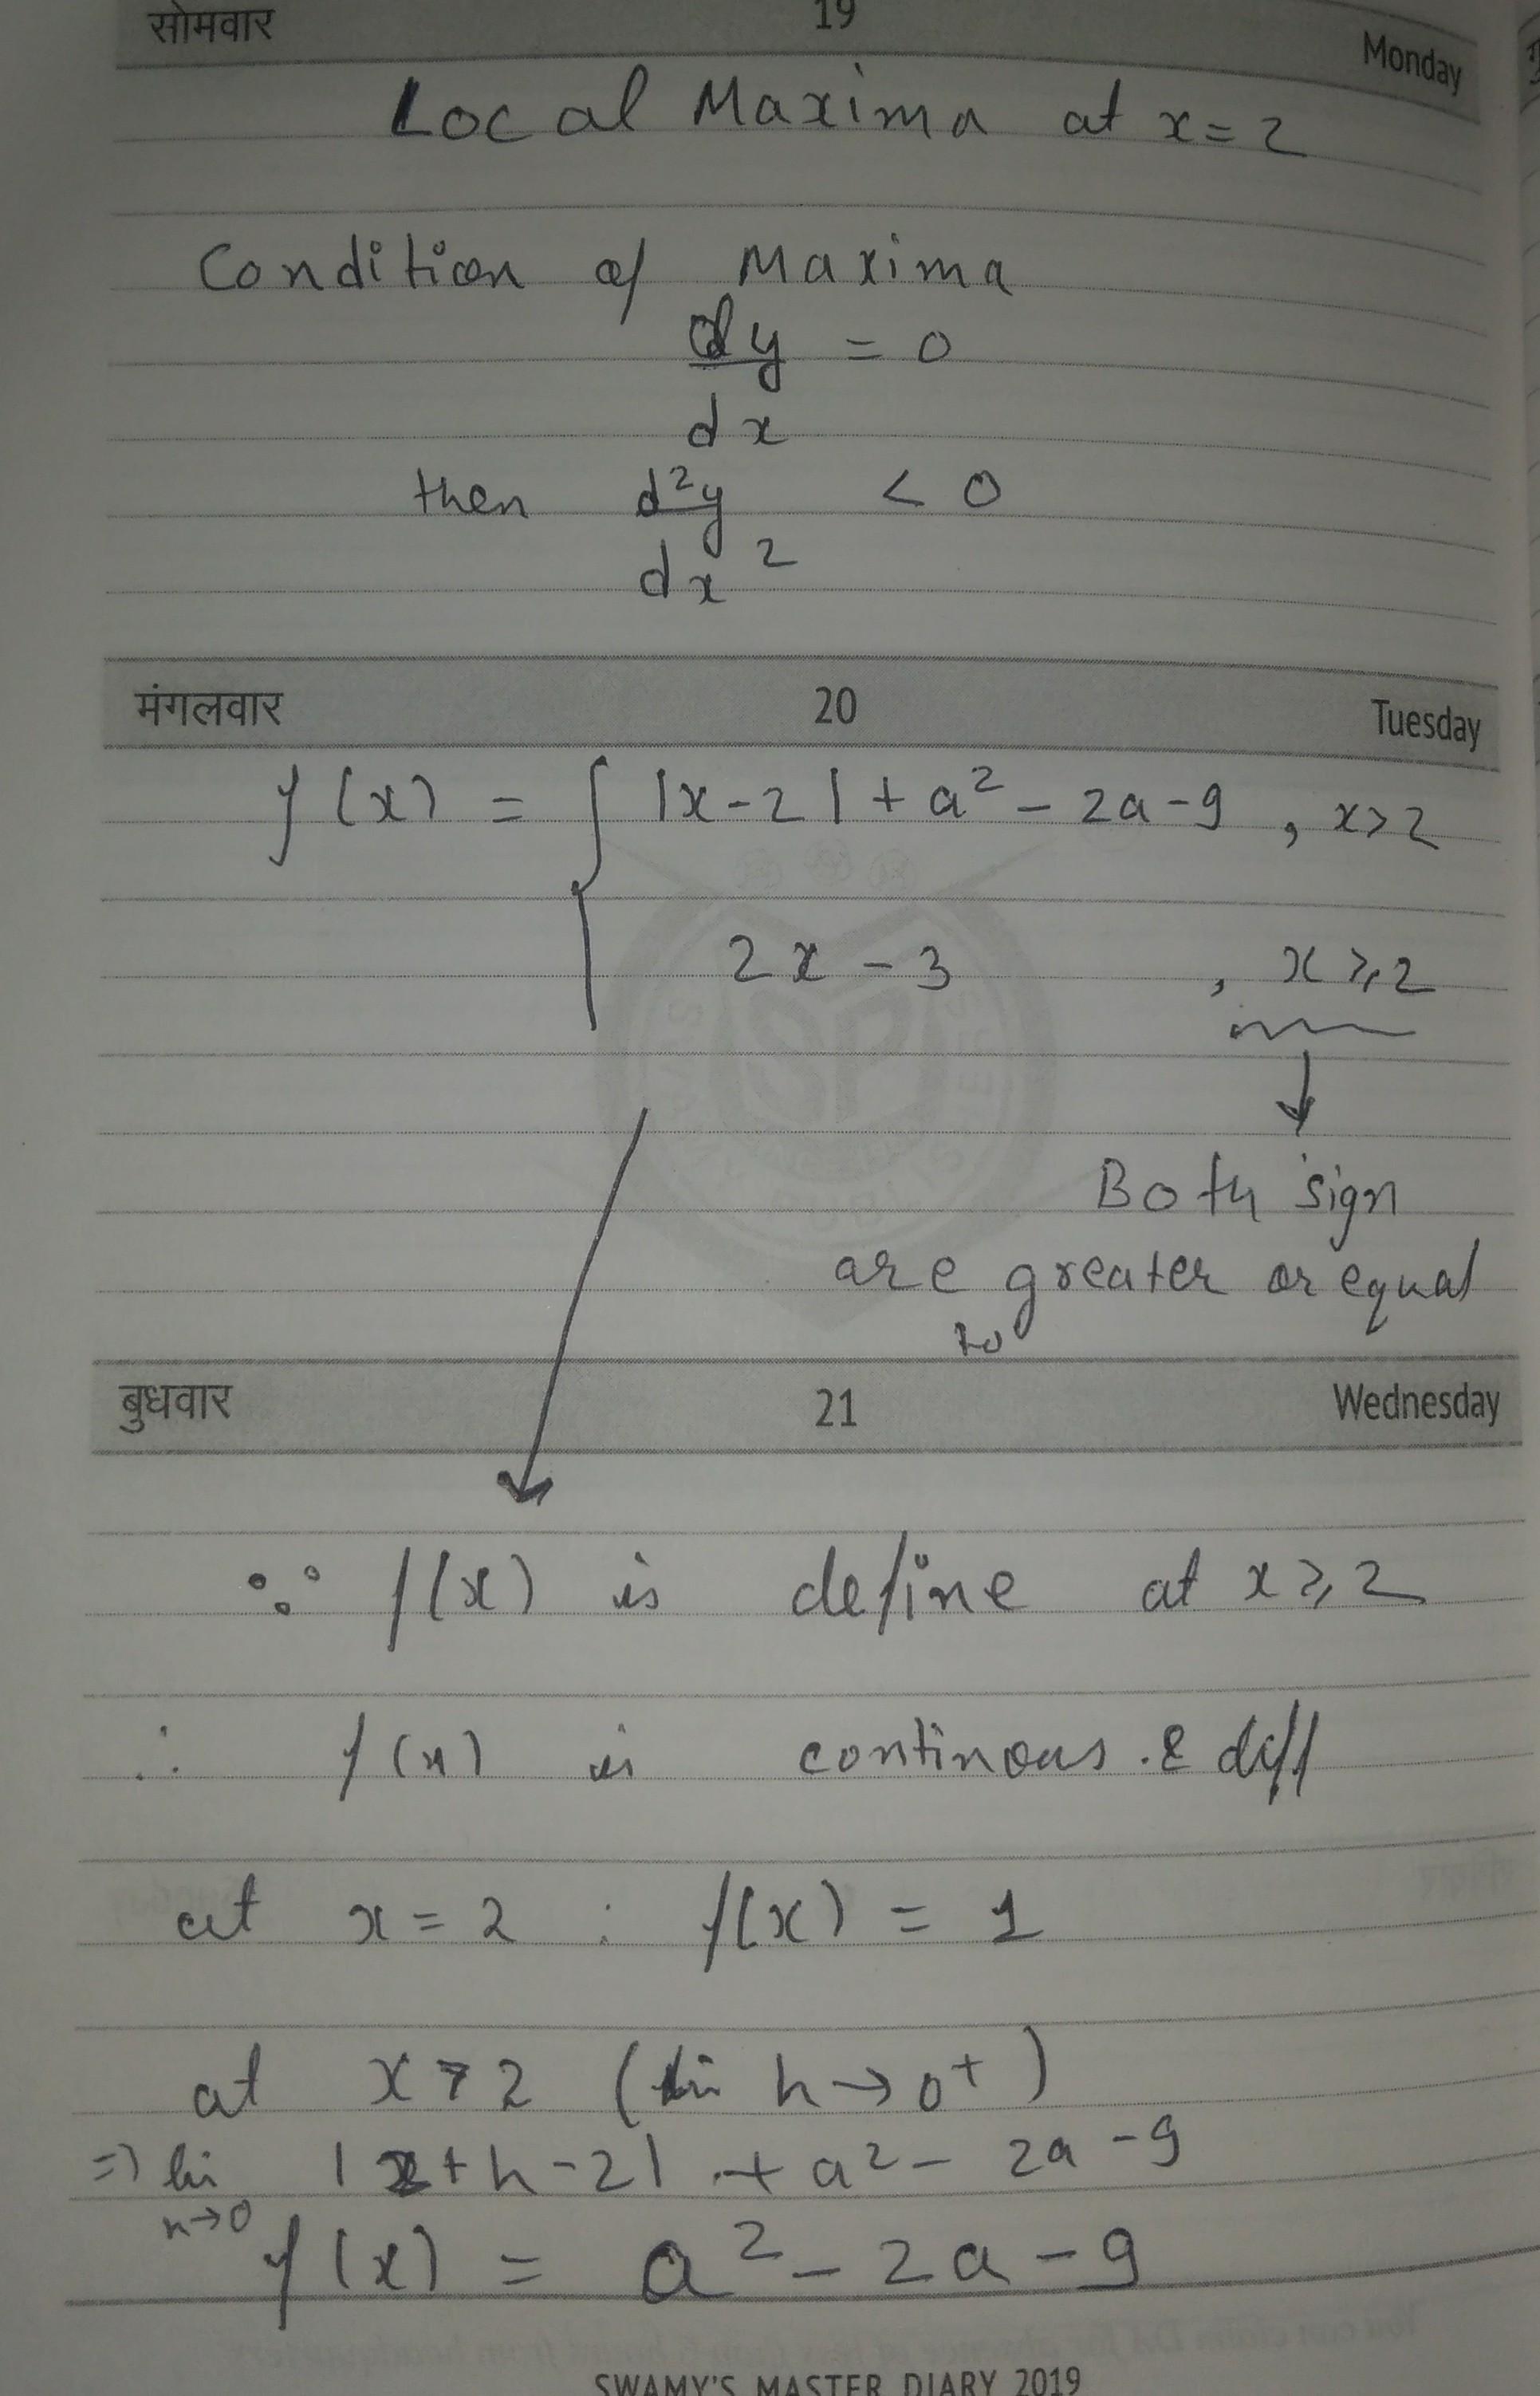 सोमवार 19 Monday
Local Maxima at x = 2
Condition of Maxima
dy = 0
dx
then d²y < 0
dx²
मंगलवार 20 Tuesday
f(x) = { |x-2| + a² - 2a - 9 , x > 2
2x - 3 , x ⩾ 2
↓
Both sign
are greater or equal
to
बुधवार 21 Wednesday
∵ f(x) is define at x ⩾ 2
∴ f(x) is continous & diff
at x = 2 : f(x) = 1
at x > 2 (li h → 0⁺)
=) li |2 + h - 2| + a² - 2a - 9
h→0
f(x) = a² - 2a - 9
SWAMY'S MASTER DIARY 2019